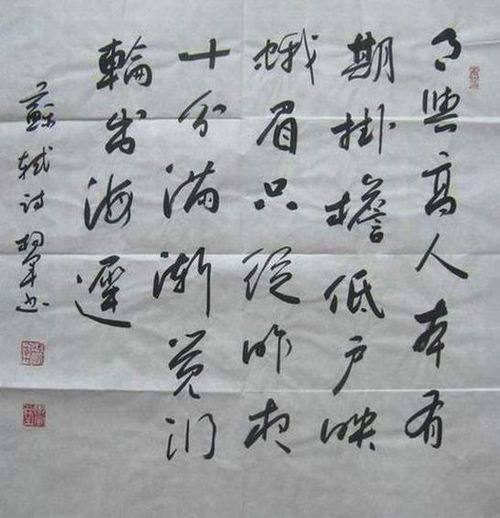 月與高人本有
期掛檐低戶映
蛾眉只從昨夜
十分滿漸覺冰
輪出海遲
蘇軾詩